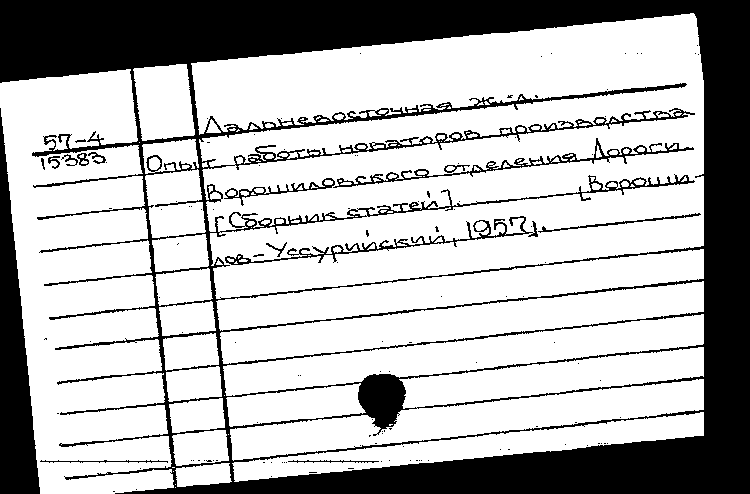 Дальневосточная ж. д.
57-4
15383
Опыт работы новаторов производства
Ворошиловского отделения Дороги.
[Сборник статей]. [Вороши-
лов-Уссурийский, 1957].